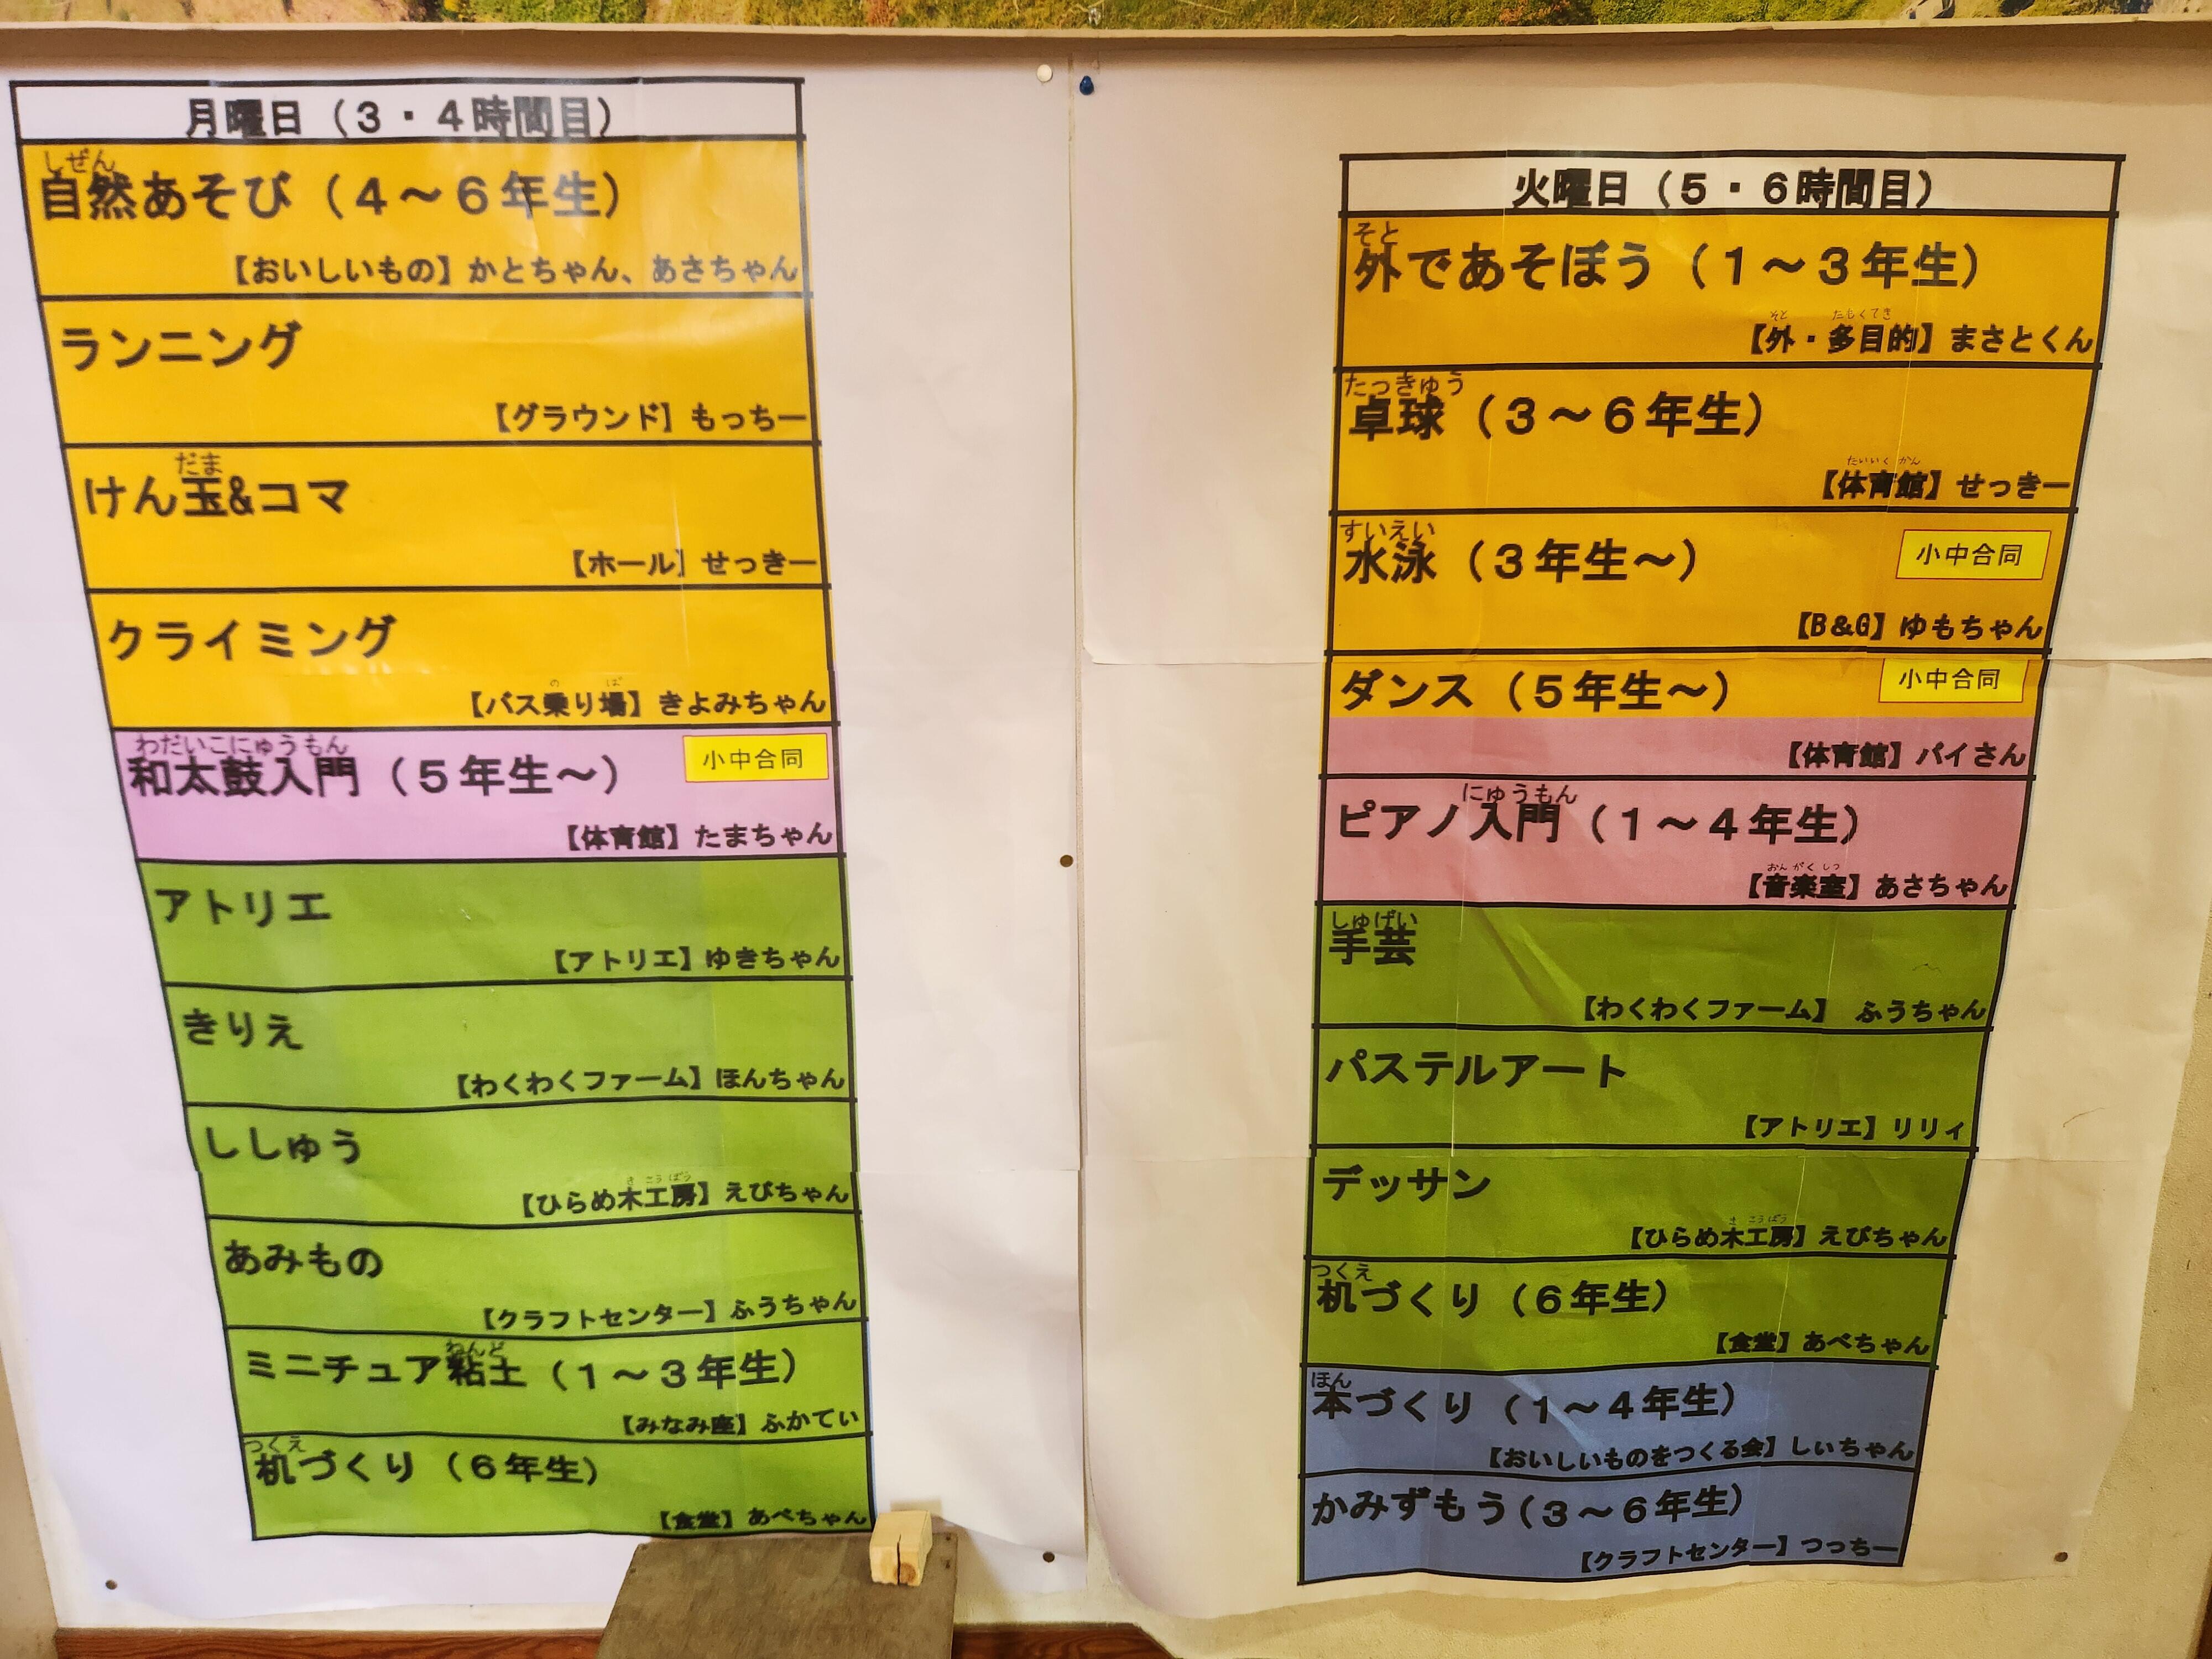 月曜日（３・４時間目）
しぜん
自然あそび（４～６年生）
【おいしいもの】かとちゃん、あさちゃん
ランニング
【グラウンド】もっちー
だま
けん玉&コマ
【ホール】せっきー
クライミング
の ば
【バス乗り場】きよみちゃん
わだいこにゅうもん
和太鼓入門（５年生～）
小中合同
【体育館】たまちゃん
アトリエ
【アトリエ】ゆきちゃん
きりえ
【わくわくファーム】ほんちゃん
ししゅう
き こうぼう
【ひらめ木工房】えびちゃん
あみもの
【クラフトセンター】ふうちゃん
ねんど
ミニチュア粘土（１～３年生）
【みなみ座】ふかてぃ
つくえ
机づくり（６年生）
【食堂】あべちゃん
火曜日（５・６時間目）
そと
外であそぼう（１～３年生）
そと たもくてき
【外・多目的】まさとくん
たっきゅう
卓球（３～６年生）
たいいくかん
【体育館】せっきー
すいえい
水泳（３年生～）
小中合同
【B&G】ゆもちゃん
ダンス（５年生～）
小中合同
【体育館】パイさん
にゅうもん
ピアノ入門（１～４年生）
おんがくしつ
【音楽室】あさちゃん
しゅげい
手芸
【わくわくファーム】 ふうちゃん
パステルアート
【アトリエ】リリィ
デッサン
き こうぼう
【ひらめ木工房】えびちゃん
つくえ
机づくり（６年生）
【食堂】あべちゃん
ほん
本づくり（１～４年生）
【おいしいものをつくる会】しぃちゃん
かみずもう（３～６年生）
【クラフトセンター】つっちー